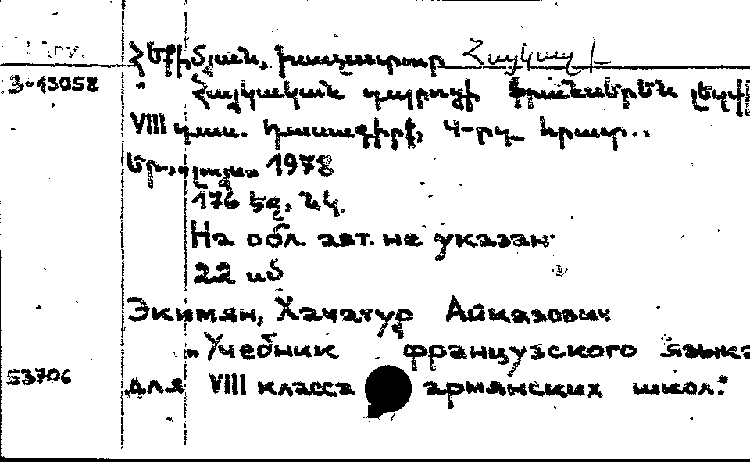 Հեքիմյան, Խաչատուր Հայկազի
3-13052
"Հայկական դպրոցի ֆրանսերեն լեզվի
VIII դաս. դասագիրք, 4-րդ հրատ..
Եր., 1978
176 էջ, նկ.
На обл. авт. не указан.
22 սմ
Экимян, Хачатур Айказович
"Учебник французского языка
53706
для VIII класса армянских школ."